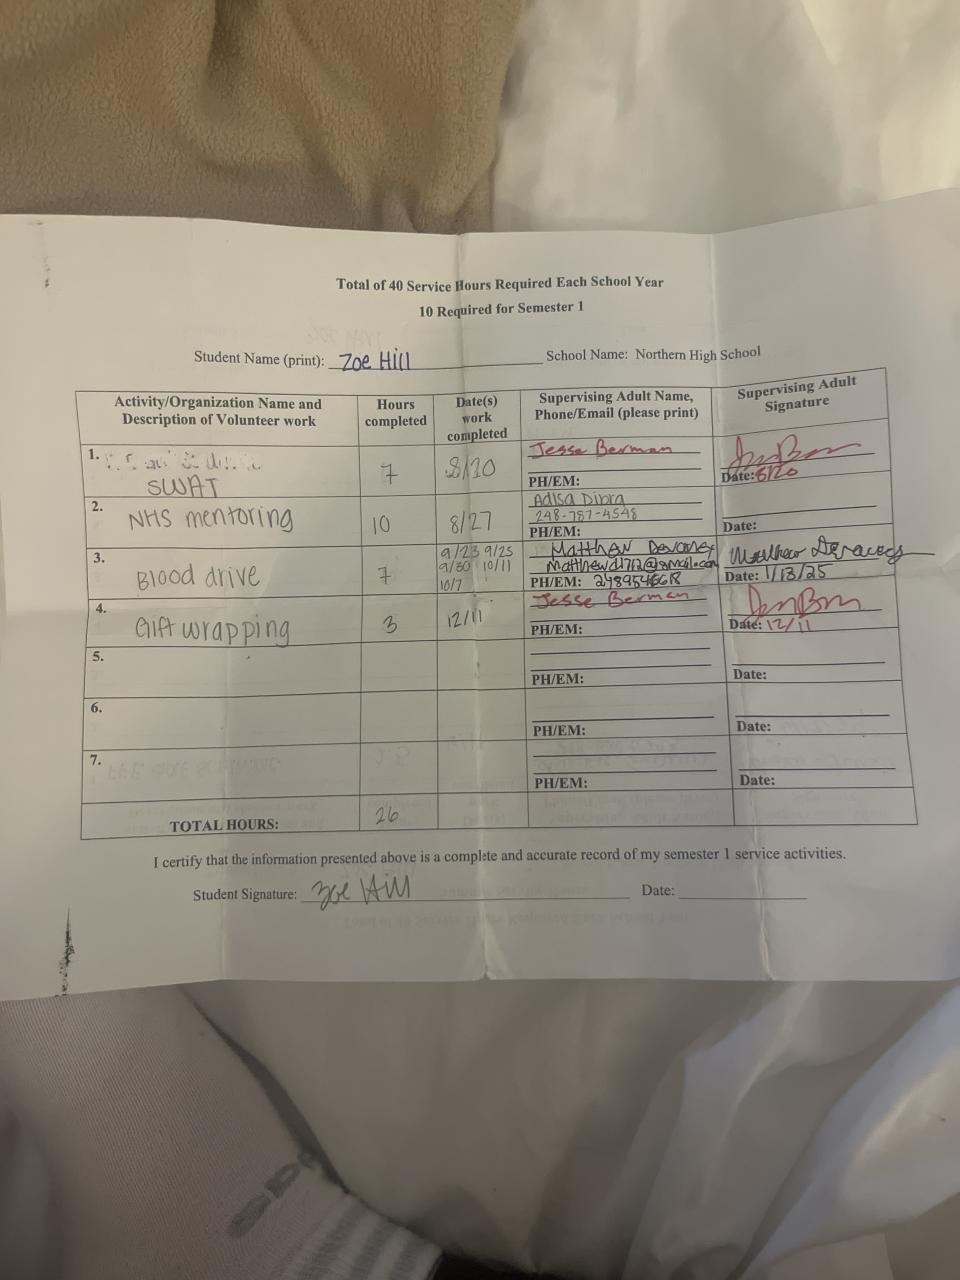 Total of 40 Service Hours Required Each School Year
10 Required for Semester 1
Student Name (print): Zoe Hill School Name: Northern High School
Activity/Organization Name and Description of Volunteer work
Hours completed
Date(s) work completed
Supervising Adult Name, Phone/Email (please print)
Supervising Adult Signature
1. SWAT
7
8/20
Jesse Berman
PH/EM:
Date: 8/20
2. NHS mentoring
10
8/27
Adisa Dibra
248-787-4548
PH/EM:
Date:
3. Blood drive
7
9/23 9/25
9/30 10/11
10/7
Matthew
PH/EM:
Matthew
Date: 1/13/25
4. Gift wrapping
3
12/11
Jesse Berman
PH/EM:
Date: 12/11
5.
PH/EM:
Date:
6.
PH/EM:
Date:
7.
PH/EM:
Date:
TOTAL HOURS: 26
I certify that the information presented above is a complete and accurate record of my semester 1 service activities.
Student Signature: Zoe Hill Date: